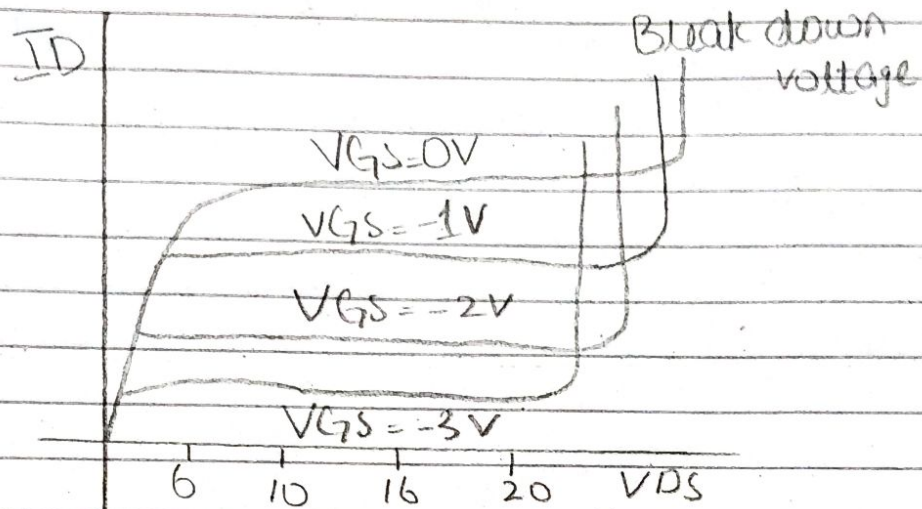 ID
Break down
voltage
VGS=0V
VGS=-1V
VGS=-2V
VGS=-3V
6 10 16 20 VDS